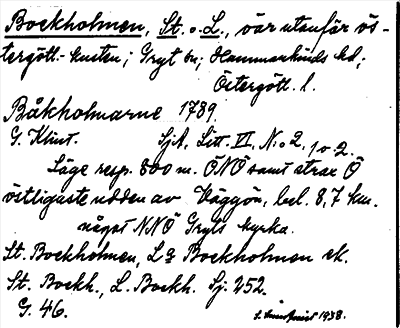 Bockholmen, St. o. L., öar utanför ös-
tergötl.-kusten; Gryt sn; Hammarkinds hd;
Östergötl. l.
Båkholmarne 1789.
G. Klint. SjA, Litt. VI, No 2, 1 o 2.
Läge resp. 800 m. ÖNÖ samt strax Ö
östligaste udden av Väggön, bel. 8,7 km.
något NNÖ Gryts kyrka.
St. Bockholmen, L:a Bockholmen ek.
St. Bockh., L. Bockh. Sj. 252.
G. 46.
1938.